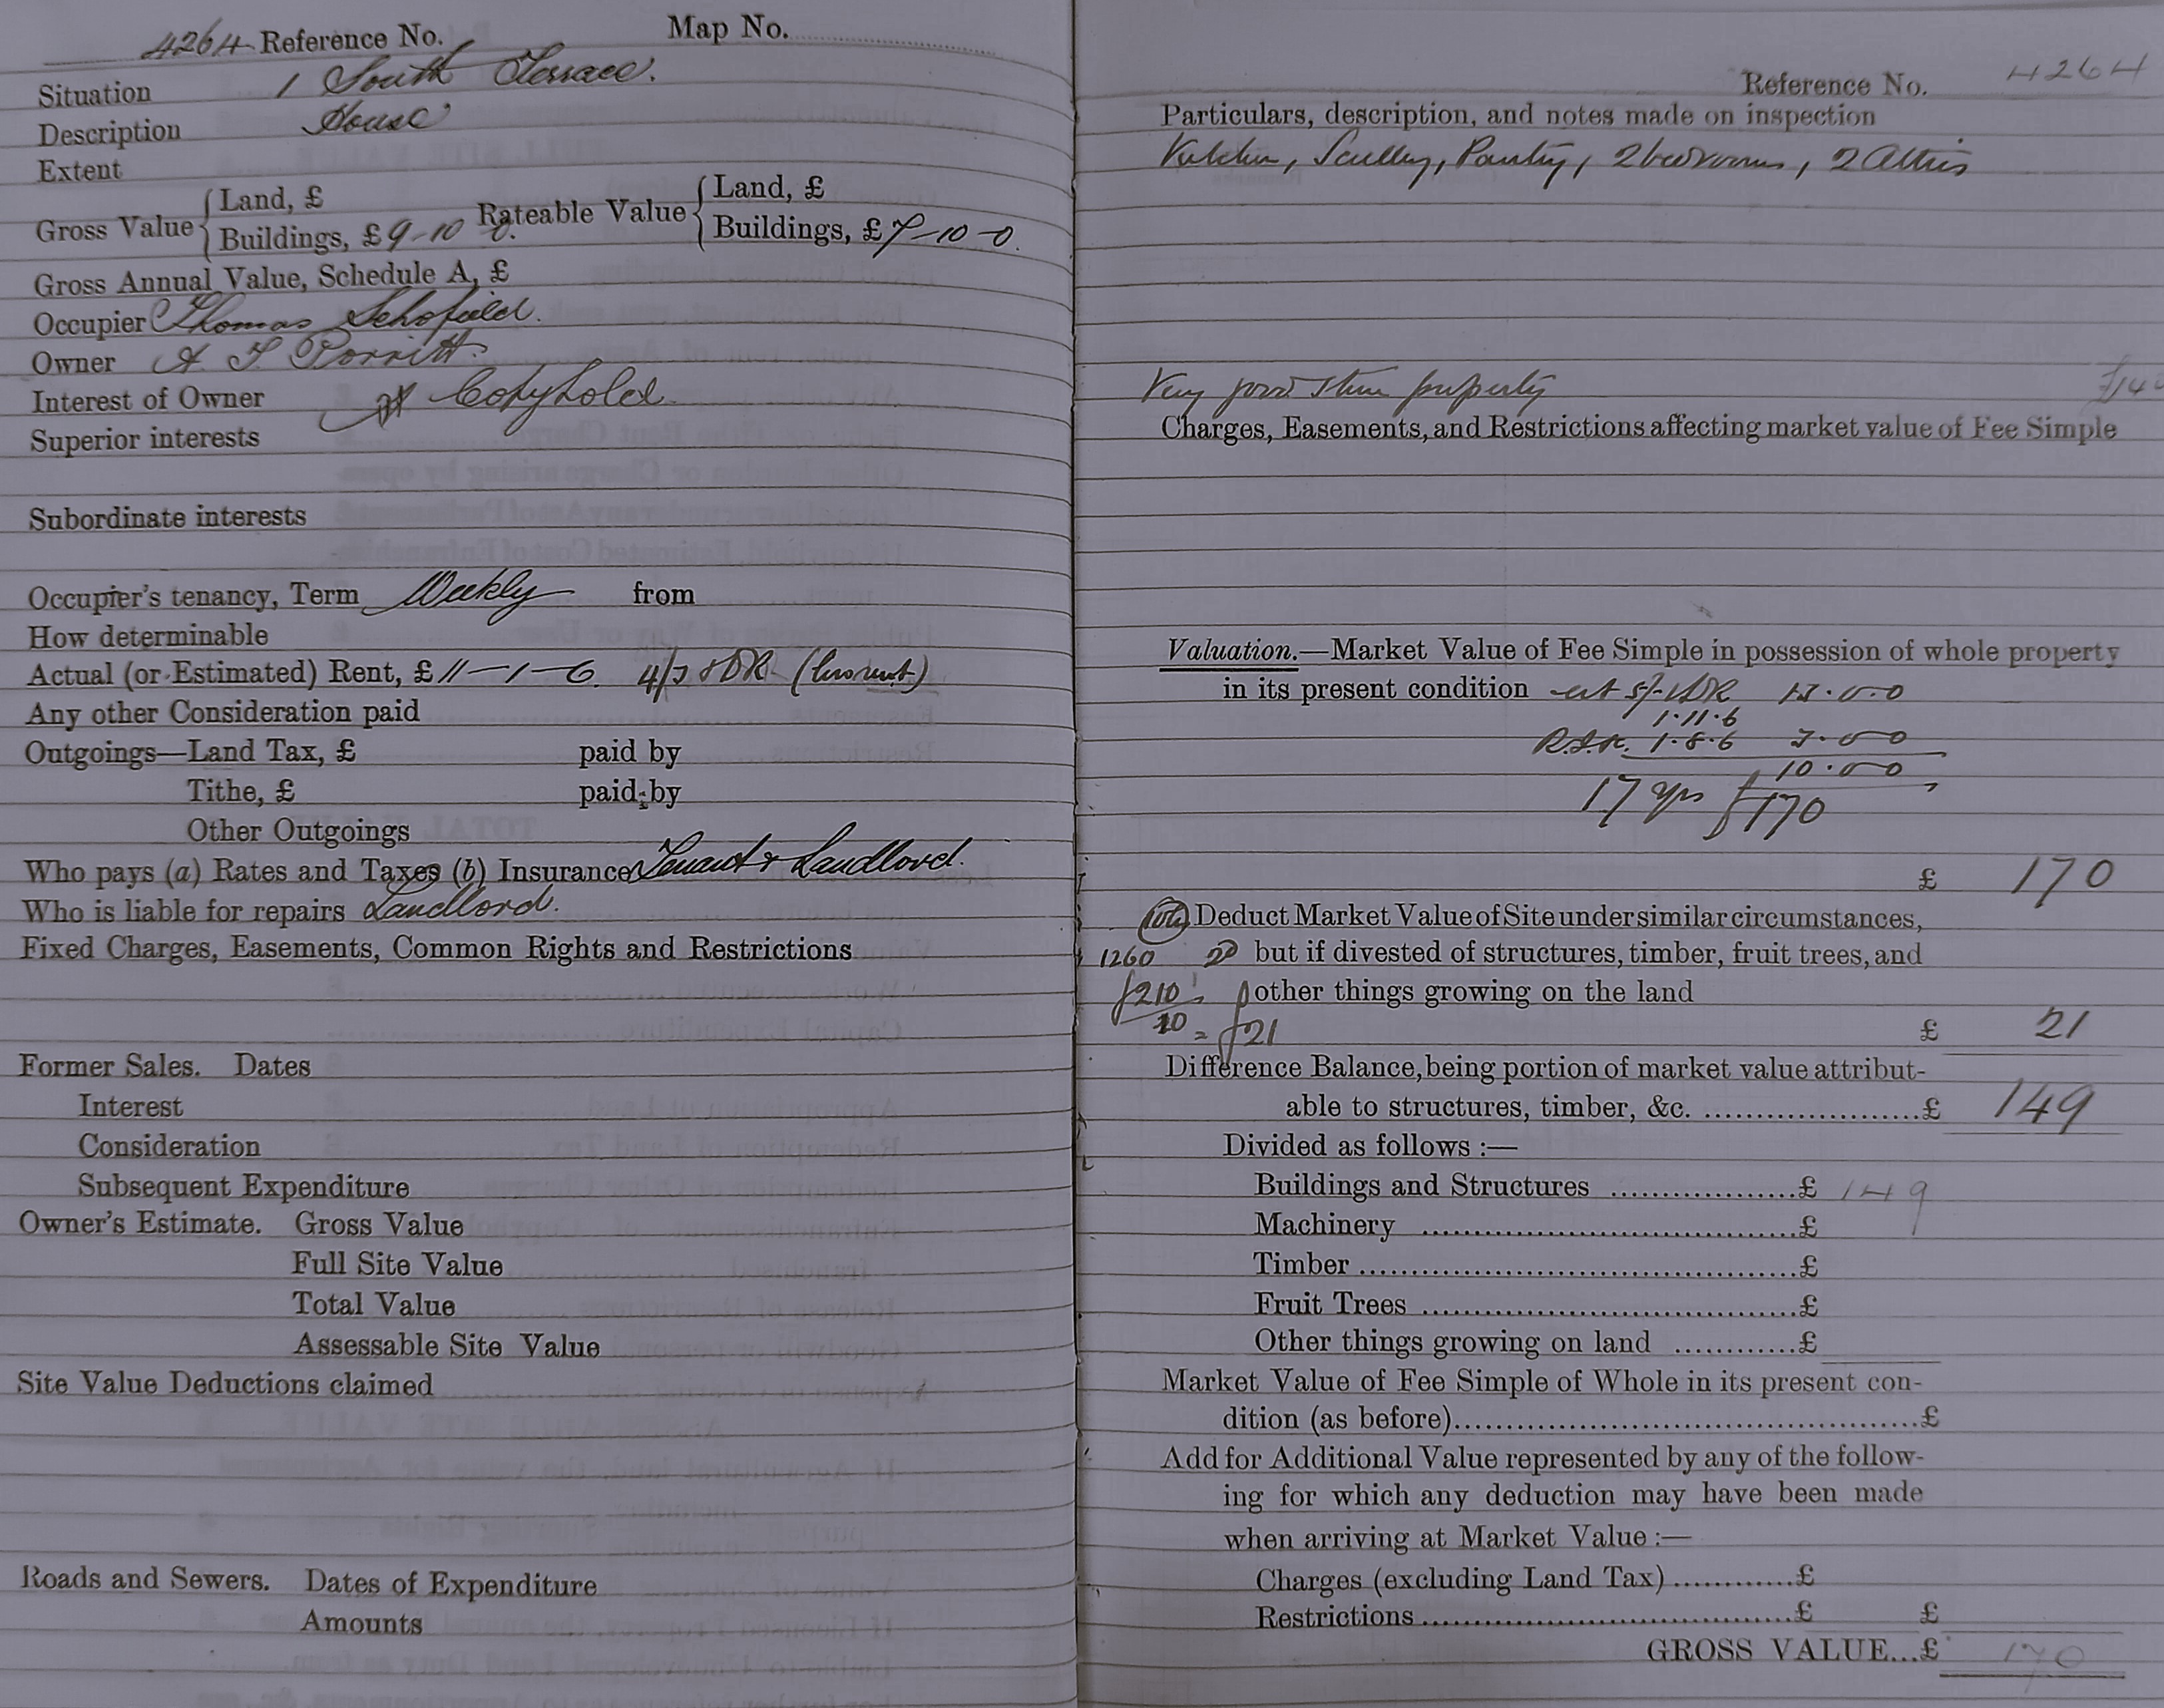 4264 Reference No. Map No.
Situation 1 South Terrace.
Description House
Extent
Gross Value { Land, £
Buildings, £ 9-10 0. Rateable Value { Land, £
Buildings, £ 7-10-0.
Gross Annual Value, Schedule A, £
Occupier Thomas Schofield.
Owner A. T. Porritt.
Interest of Owner Copyhold.
Superior interests
Subordinate interests
Occupier's tenancy, Term Weekly from
How determinable
Actual (or Estimated) Rent, £ 11-1-6. 4/3
Any other Consideration paid
Outgoings—Land Tax, £ paid by
Tithe, £ paid by
Other Outgoings
Who pays (a) Rates and Taxes (b) Insurance Tenant & Landlord.
Who is liable for repairs Landlord.
Fixed Charges, Easements, Common Rights and Restrictions
Former Sales. Dates
Interest
Consideration
Subsequent Expenditure
Owner's Estimate. Gross Value
Full Site Value
Total Value
Assessable Site Value
Site Value Deductions claimed
Roads and Sewers. Dates of Expenditure
Amounts
Reference No. 4264
Particulars, description, and notes made on inspection
Kitchen, Scullery, Pantry, 2 bedrooms, 2 Attics
Very good stone property
Charges, Easements, and Restrictions affecting market value of Fee Simple
Valuation.—Market Value of Fee Simple in possession of whole property
in its present condition at 5/- 13.0.0
1.11.6
1.8.6 3.0.0
10.0.0
17 yrs £170
£ 170
Deduct Market Value of Site under similar circumstances,
1260 but if divested of structures, timber, fruit trees, and
£210 other things growing on the land
10 = £21
£ 21
Difference Balance, being portion of market value attribut-
able to structures, timber, &c. ....................£ 149
Divided as follows :—
Buildings and Structures ..................£ 149
Machinery ....................................£
Timber ..........................................£
Fruit Trees ....................................£
Other things growing on land ............£
Market Value of Fee Simple of Whole in its present con-
dition (as before)............................................£
Add for Additional Value represented by any of the follow-
ing for which any deduction may have been made
when arriving at Market Value :—
Charges (excluding Land Tax) ............£
Restrictions ....................................£ £
GROSS VALUE...£ 170